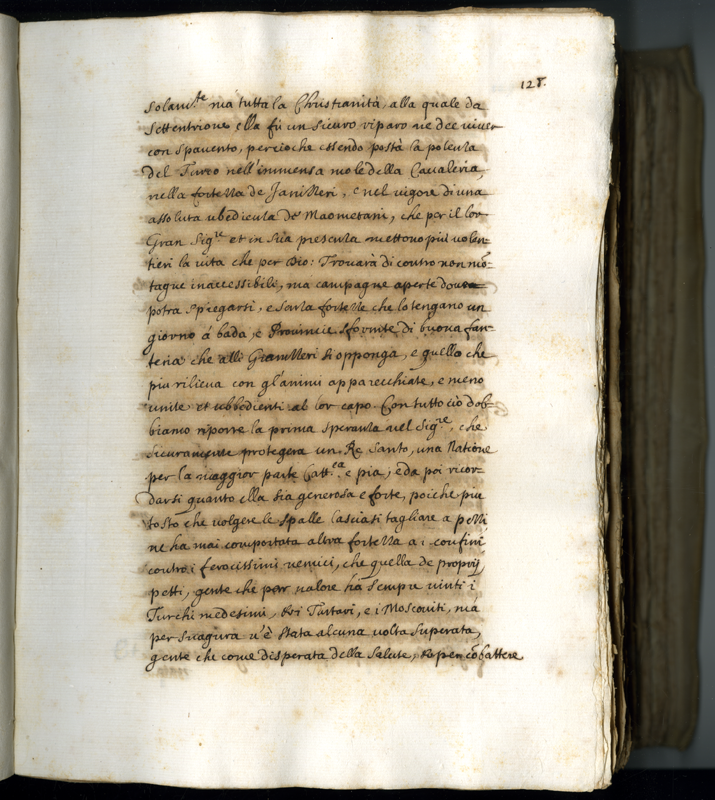 128.
Solam.te ma tutta la Christianità, alla quale da
Settentrione ella fù un sicuro riparo ne dee viver
con spavento, percioche essendo posta la potenza
del Turco nell'immensa mole della Cavaleria,
nella fortezza de Janizzeri, e nel vigore di una
assoluta ubedienza de Maometani, che per il lor
Gran Sig.re et in sua presenza mettono più volen-
tieri la vita che per Dio: Trovarà di contro non mõ-
tagne inaccessibili, ma campagne aperte dove
potrà spiegarsi, e scarse fortezze che lo tengano un
giorno à bada, e Provincie sfornite di buona fan-
teria che alli Gianizzeri si opponga, e quello che
più rilieva con gl'animi apparecchiate, e meno
unite et ubbedienti al lor capo. Con tutto ciò dob-
biamo riporre la prima speranza nel Sig.re, che
sicuramente protegerà un Re Santo, una Natione
per la maggior parte Catt.ca e pia, e da poi ricor-
darsi quanto ella sia generosa e forte, poiche più
tosto che volgere le spalle lasciasi tagliare a pezzi
ne ha mai comportata altra fortezza a i confini
contro i ferocissimi nemici, che quella de proprij
petti, gente che per valore hà sempre vinti i
Turchi medesimi, i Tartari, e i Moscoviti, ma
per sciagura n'è stata alcuna volta superata,
gente che come disperata della salute, per cõbattere